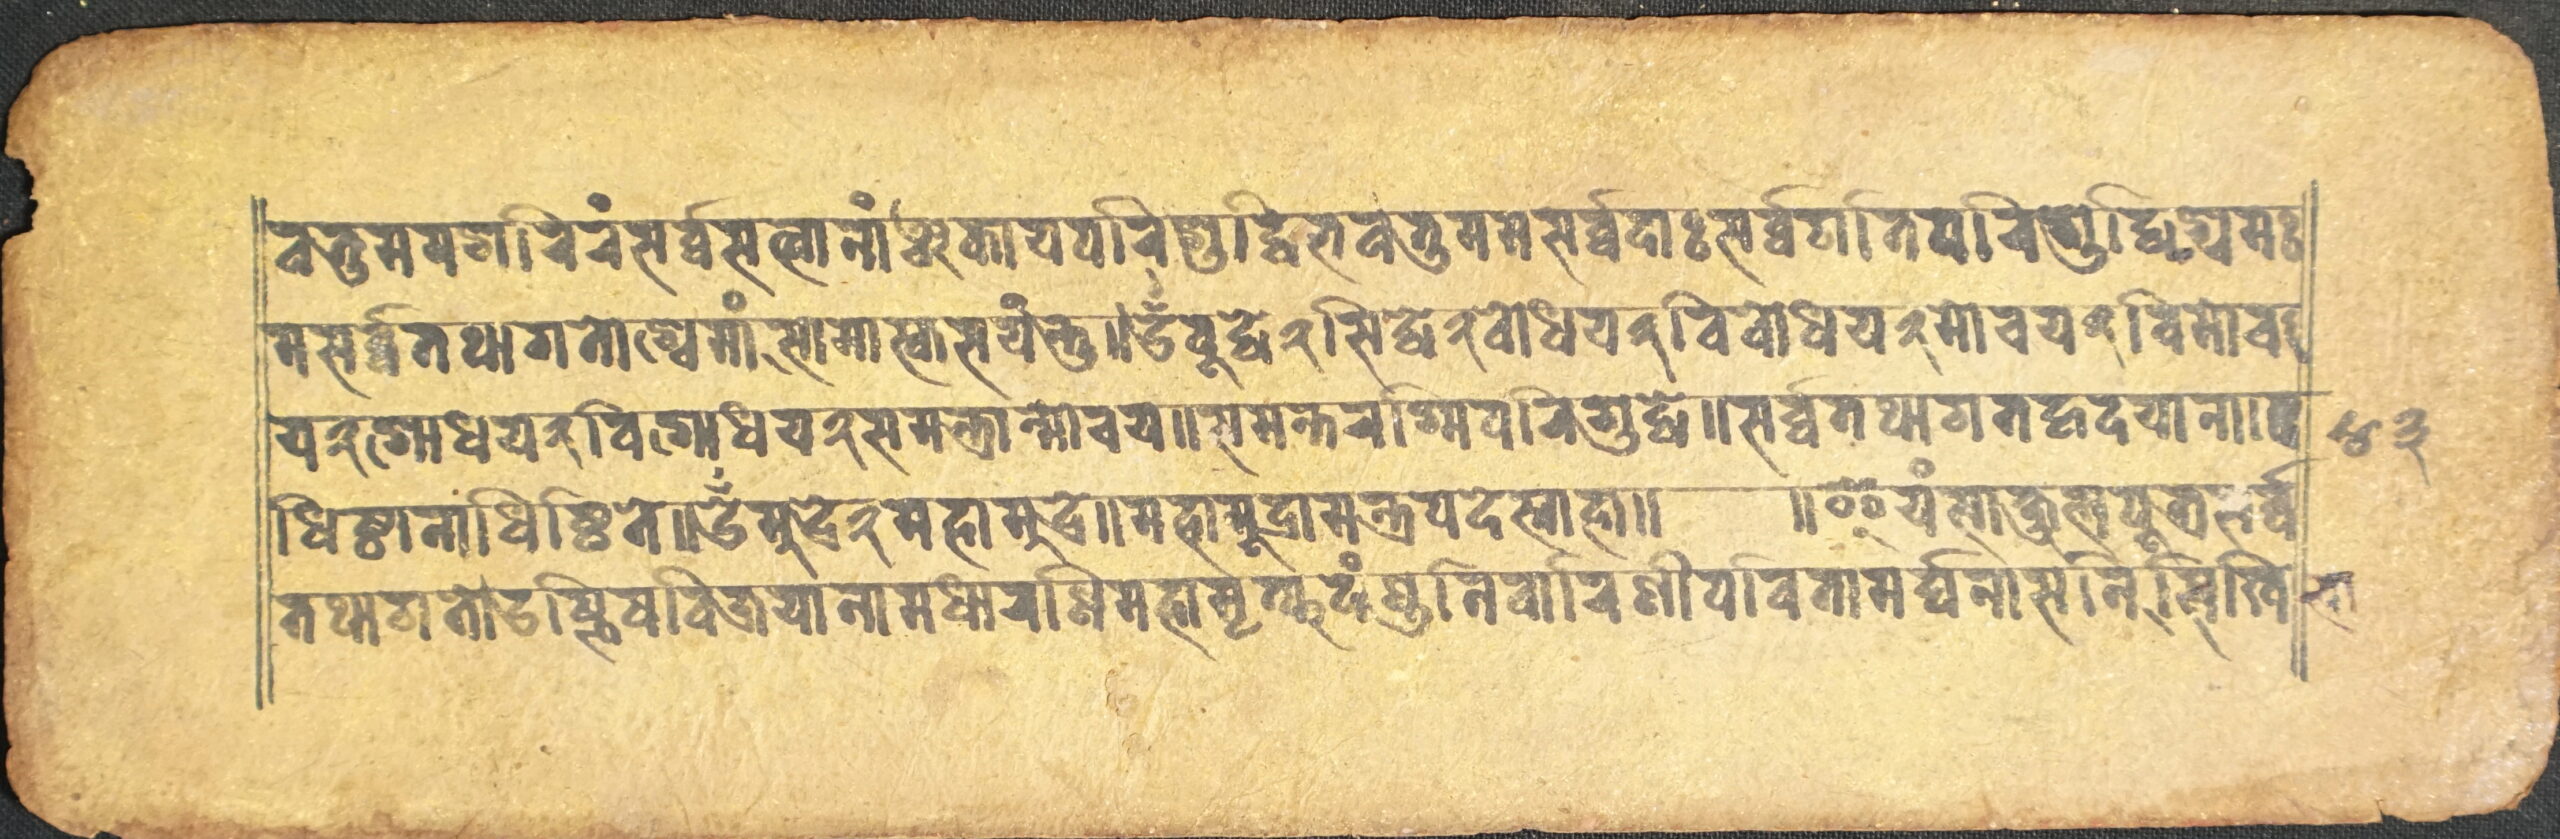 वतुममषशरिरंसर्व्वसत्वानांञ्चकायपरिशुद्धिभवतुममसर्व्वदाःसर्व्वगतिपरिशुद्धिश्चेमः
मसर्व्वतथागतोश्चेमांसामास्वासयंन्तु॥ॐबूद्धे२सिद्धे२बोधय२विबोधय२मोचय२विमोच
य२शोधय२विशोधय२समन्त्रान्मोचय॥समन्तरश्मिपरिशुद्धे॥सर्व्वतथागतहृदयाना॥
धिष्ठानाधिष्ठिते॥ॐमुद्रे२महामुद्रे॥महामूद्रामन्त्रपदेस्वाहा॥ ॥यंसाकुलपूत्रसर्व्व
तथागतोउष्णिषविजयानामधारणिमहामृत्युदंष्तुनिर्वारिणीपवितामर्घनासनि
४३